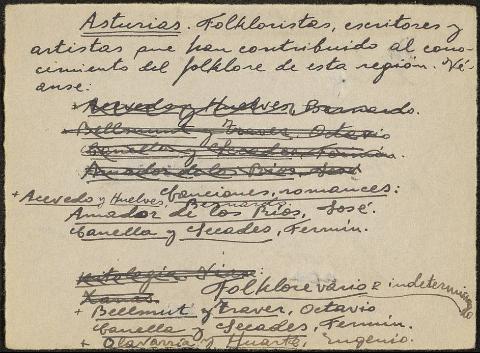 Asturias. Folkloristas, escritores y
artistas que han contribuido al cono-
cimiento del folklore de esta región. Vé-
anse:
+ Acevedo y Huelves, Bernardo.
Bellmunt y Traver, Octavio
Canella y Secades, Fermín.
Amador de los Ríos, José
Canciones, romances:
+ Acevedo y Huelves, Bernardo.
Amador de los Ríos, José.
Canella y Secades, Fermín.
Mitología:
Xanas
Folklore vario e indeterminado
+ Bellmunt y Traver, Octavio
Canella y Secades, Fermín.
+ Olavarría y Huarte, Eugenio.